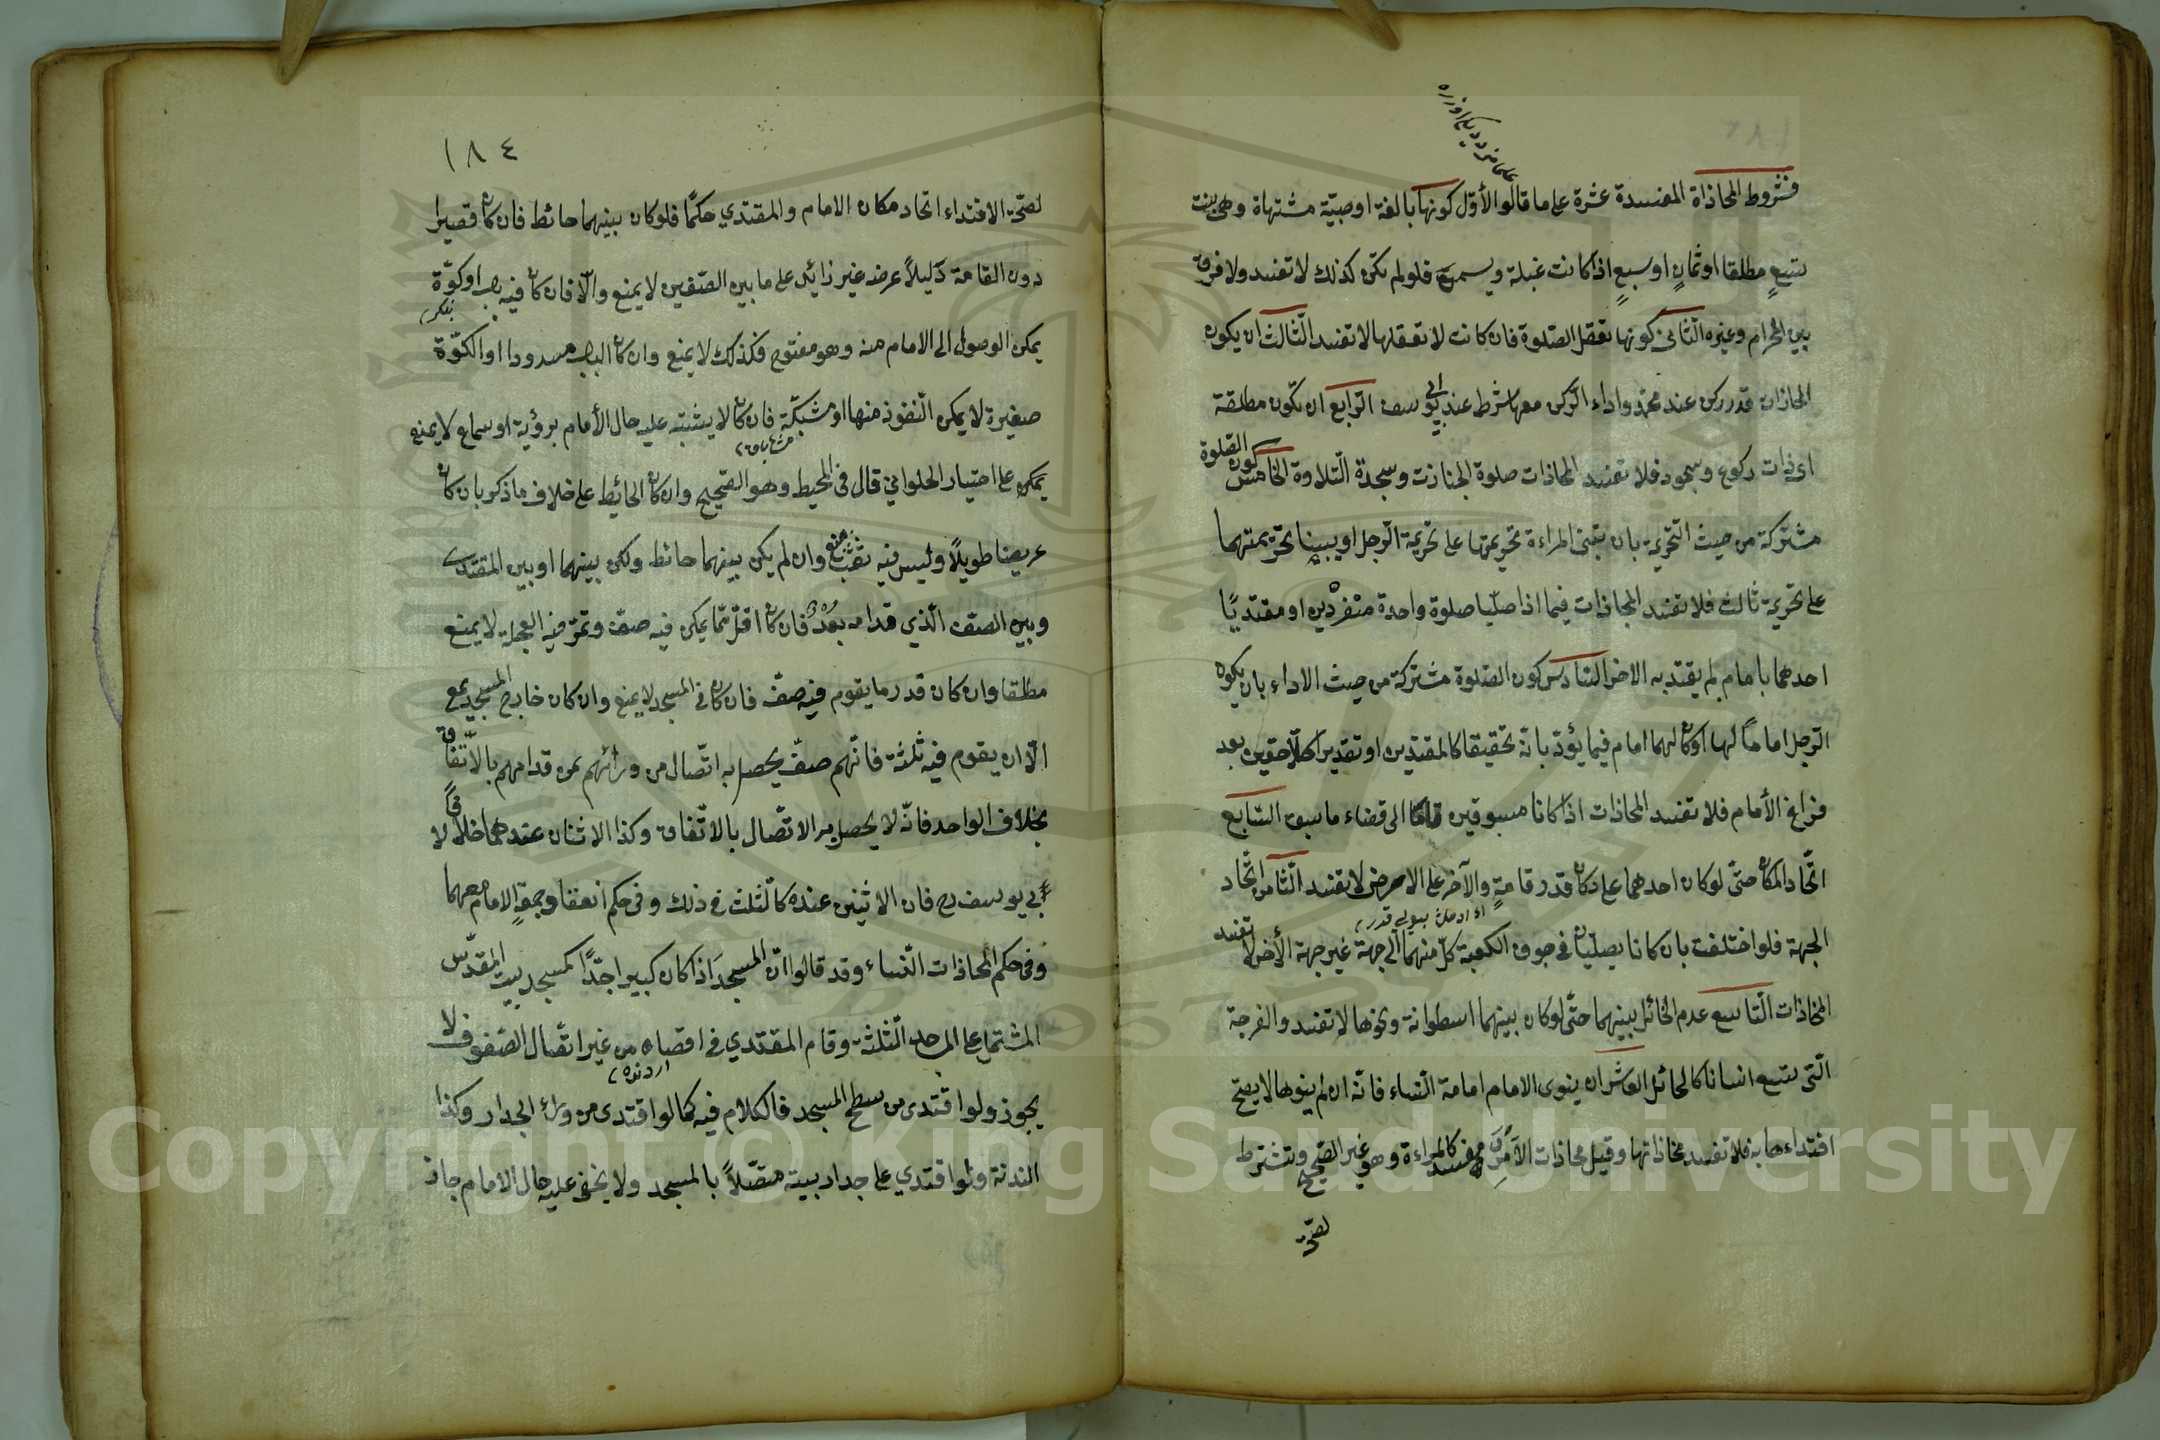 فشروط المحاذاة المفسدة عشرة على ما قالوا الأوّل كونها بالغة او صبيّة مشتهاة وهى بنت
تسعٍ مطلقا او ثمانٍ او سبعٍ اذا كانت عَبلة فلو لم تكن كذلك لا تفسد ولا فرق
بين المحرام وغيره الثانى كونها تعقل الصلوة فان كانت لا تعقلها لا تفسد الثالث ان يكون
المحاذات قدر ركن عند محمّد واداء الركن معها شرط عند ابى يوسف الرابع ان تكون مطلقة
اى ذات ركوع وسجود فلا تفسد المحاذات صلوة الجنازة وسجدة التلاوة الخامس كون الصلوة
مشتركة من حيث التحريمة بان تبنى المراءة تحريمتها على تحريمة الرجل او يبنيا تحريمتهما
على تحريمة ثالث فلا تفسد المحاذات فيما اذا صليا صلوة واحدة منفردين او مقتديًا
احدهما بامام لم يقتد به الاخر السادس كون الصلوة مشتركة من حيث الاداء بان يكون
الرجل اماماً لها او كان لهما امام فيما يؤديانه تحقيقا كالمقتدين او تقديرا كاللاحقين بعد
فراغ الأمام فلا تفسد المحاذات اذا كانا مسبوقين قاما الى قضاء ما سبق السابع
اتّحاد المكان حتّى لو كان احدهما على دكان قدر قامةٍ والآخر على الارض لا تفسد الثامن اتّحاد
الجهة فلو اختلفت بان كانا يصليان فى جوف الكعبة كل منهما الى جهة غير جهة الأخر لا تفسد
المحاذات التاسع عدم الحائل بينهما حتّى لو كان بينهما اسطوانة ونحوها لا تفسد والفرجة
التى تسع انسانا كالحائل العاشر ان ينوى الامام امامة النساء فانّه ان لم ينوها لا يصح
اقتداءها به فلا تفسد محاذاتها وقيل محاذات الأمرد مفسد كالمراءة وهو غير الصحيح وتشترط
لصحّة
١٨٤
لصحّة الاقتداء اتحاد مكان الامام والمقتدي حكمًا فلو كان بينهما حائط فان كان قصيرا
دون القامة ذليلاً عرضه غير زائد على ما بين الصّفين لا يمنع والّا فان كان فيه باب او كوّة
يمكن الوصول الى الامام منه وهو مفتوح فكذلك لا يمنع وان كان الباب مسدودا او الكوّة
صغيرة لا يمكن النفوذ منها او مشبكّة فان كان لا يشتبه عليه حال الأمام برؤية او سماع لا يمنع
على اختيار الحلواني قال فى المحيط وهو الصحيح وان كان الحائط على خلاف ما ذكر بان كان
عريضا طويلاً وليس فيه ثقب منع وان لم يكن بينهما حائط ولكن بينهما او بين المقتدى
وبين الصف الّذي قدامه بعدٌ فان كان اقلّ ممّا يمكن فيه صف وتمرّ فيه العجلة لا يمنع
مطلقا وان كان قدر ما يقوم فيه صفّ فان كان فى المسجد لا يمنع وان كان خارج المسجد يمنع
الّا ان يقوم فيه ثلثة فانّهم صفّ يحصل به اتّصال من ورائهم بمن قدامهم بالاتّفاق
بخلاف الواحد فانّه لا يحصل به الاتّصال بالاتّفاق وكذا الاثنان عندهما خلافًا لا
بى يوسف رح فان الاثنين عنده كالثلث فى ذلك وفى حكم انعقاد جمعة الامام معهما
وفى حكم المحاذات النساء وقد قالوا انّ المسجدَ اذا كان كبيرا جدًّا كمسجد بيت المقدّس
المشتمل على المساجد الثلثة وقام المقتدي فى اقصاه من غير اتّصال الصّفوف لا
يجوز ولو اقتدى من سطح المسجد فالكلام فيه كما لو اقتدى من وراء الجدار وكذا
المئذنة ولو اقتدي على جدار بيته متصّلاً بالمسجد ولا يخفى عليه حال الامام جاز
Copyright © King Saud University